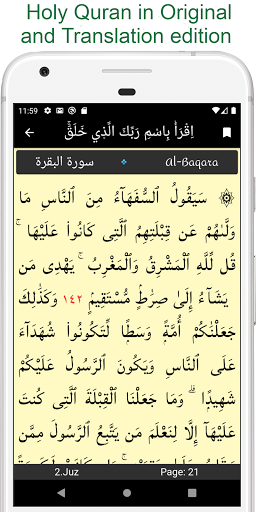 Holy Quran in Original
and Translation edition
11:59
اِقْرَاْ بِاسْمِ رَبِّكَ الَّذِي خَلَقَۚ
سورة البقرة Al-Baqara
۞ سَيَقُولُ ٱلسُّفَهَآءُ مِنَ ٱلنَّاسِ مَا
وَلَّىٰهُمْ عَن قِبْلَتِهِمُ ٱلَّتِى كَانُوا۟ عَلَيْهَا ۚ
قُل لِّلَّهِ ٱلْمَشْرِقُ وَٱلْمَغْرِبُ ۚ يَهْدِى مَن
يَشَآءُ إِلَىٰ صِرَٰطٍ مُّسْتَقِيمٍ ١٤٢ وَكَذَٰلِكَ
جَعَلْنَٰكُمْ أُمَّةً وَسَطًا لِّتَكُونُوا۟ شُهَدَآءَ
عَلَى ٱلنَّاسِ وَيَكُونَ ٱلرَّسُولُ عَلَيْكُمْ
شَهِيدًا ۗ وَمَا جَعَلْنَا ٱلْقِبْلَةَ ٱلَّتِى كُنتَ
عَلَيْهَآ إِلَّا لِنَعْلَمَ مَن يَتَّبِعُ ٱلرَّسُولَ مِمَّن
2.Juz Page: 21